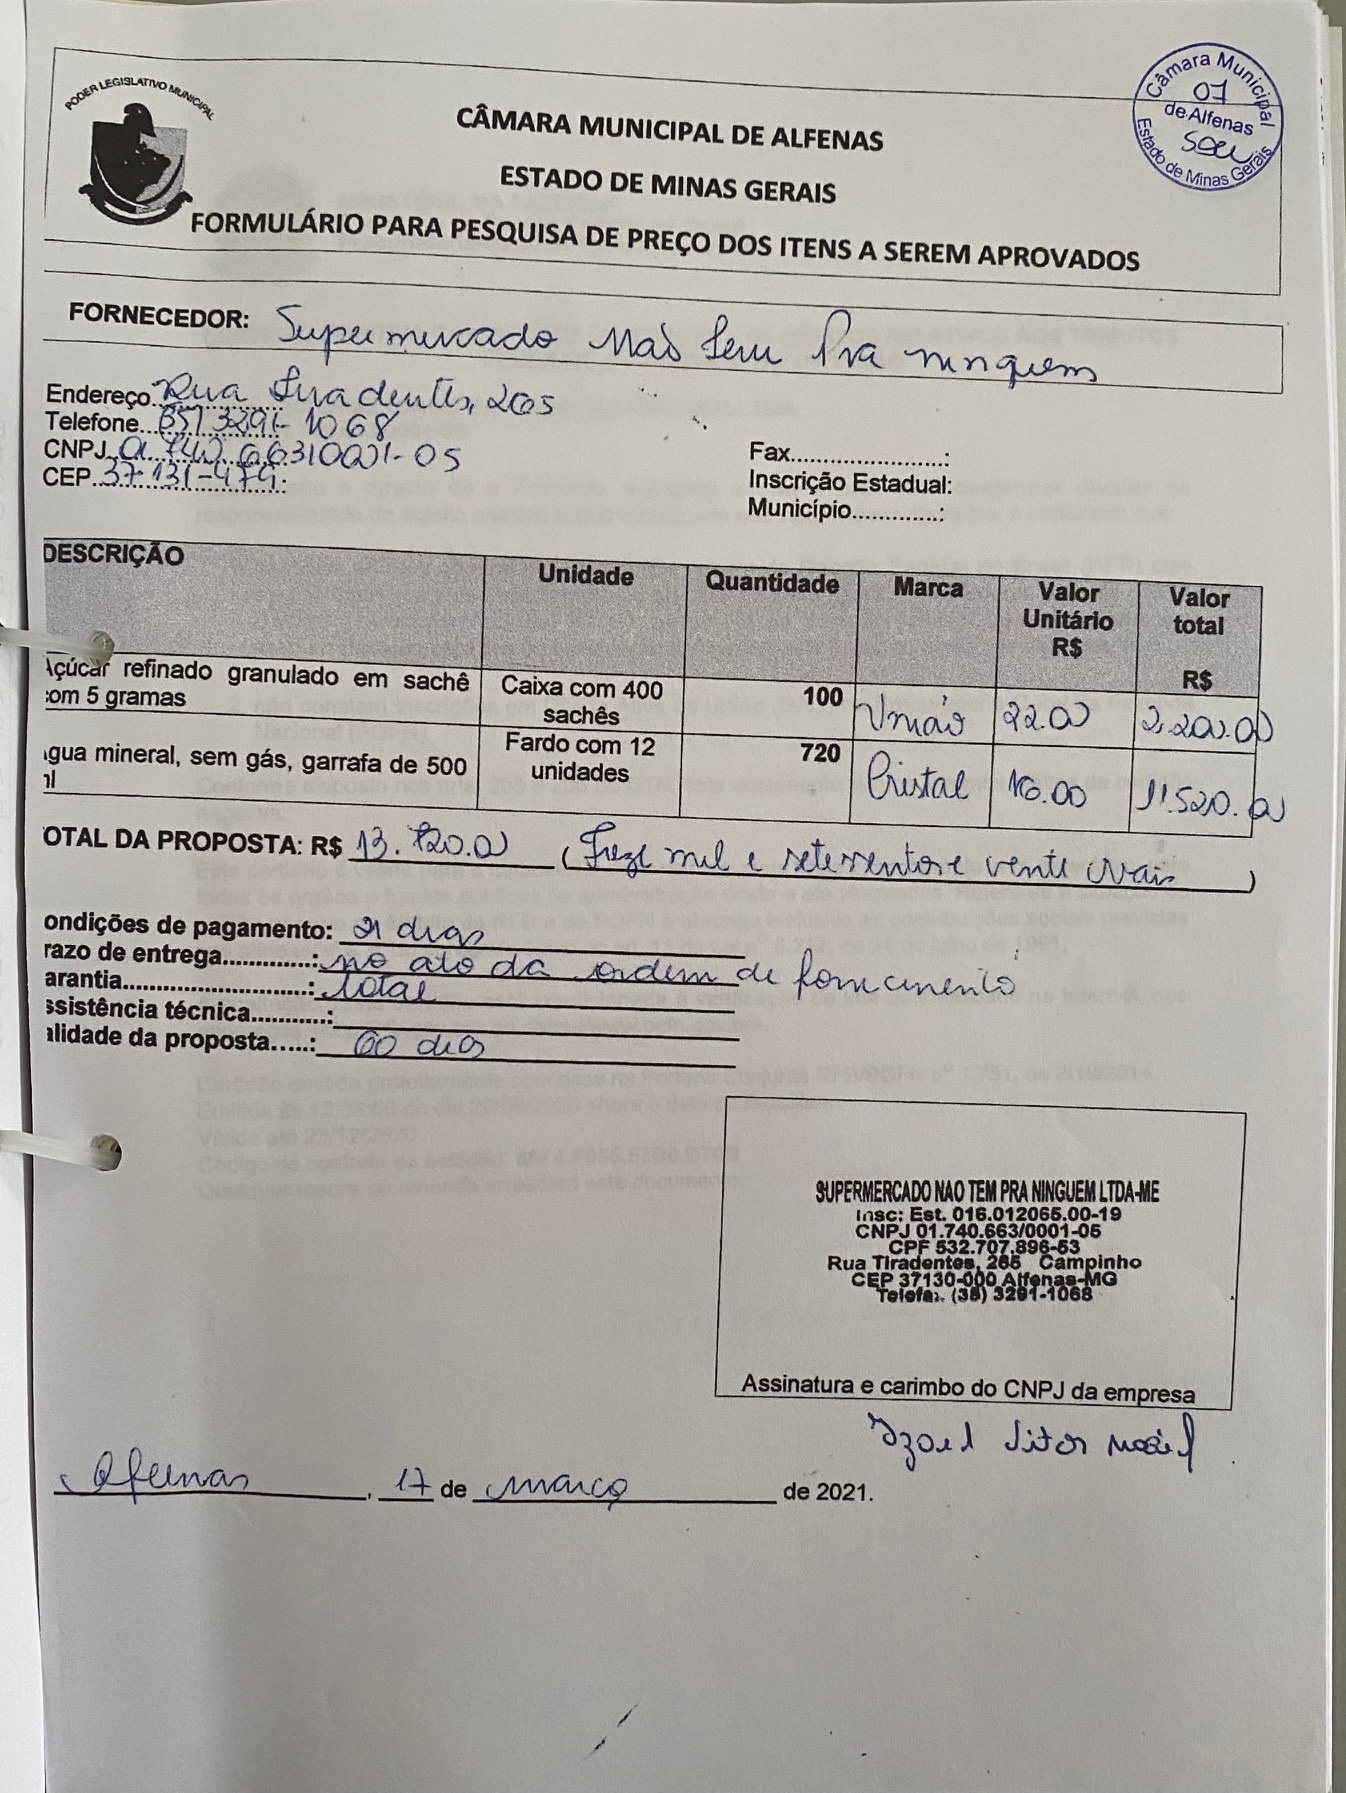 PODER LEGISLATIVO MUNICIPAL
Câmara Municipal
07
de Alfenas
Estado de Minas Gerais
CÂMARA MUNICIPAL DE ALFENAS
ESTADO DE MINAS GERAIS
FORMULÁRIO PARA PESQUISA DE PREÇO DOS ITENS A SEREM APROVADOS
FORNECEDOR: Supermercado Não Tem Pra ninguem
Endereço. Rua Tiradentes, 265
Telefone...(35) 3291-1068
CNPJ. 01.740.663/0001-05
CEP. 37.131-479.:
Fax......................:
Inscrição Estadual:
Município.............:
DESCRIÇÃO Unidade Quantidade Marca Valor Unitário R$ Valor total R$
Açúcar refinado granulado em sachê Caixa com 400 100 União 22.00 2,200.00
com 5 gramas sachês
gua mineral, sem gás, garrafa de 500 Fardo com 12 720 Cristal 16.00 11.520.00
ml unidades
OTAL DA PROPOSTA: R$ 13.720.00 (Treze mil e setessentos e vente reais)
ondições de pagamento: 21 dias
razo de entrega.............: no ato da ordem de fornecimento
arantia...........................: total
ssistência técnica...........:
alidade da proposta.....: 60 dias
SUPERMERCADO NAO TEM PRA NINGUEM LTDA-ME
Insc: Est. 016.012065.00-19
CNPJ 01.740.663/0001-05
CPF 532.707.896-53
Rua Tiradentes, 265 Campinho
CEP 37130-000 Alfenas-MG
Telefax. (35) 3291-1068
Assinatura e carimbo do CNPJ da empresa
Alfenas, 17 de março de 2021.